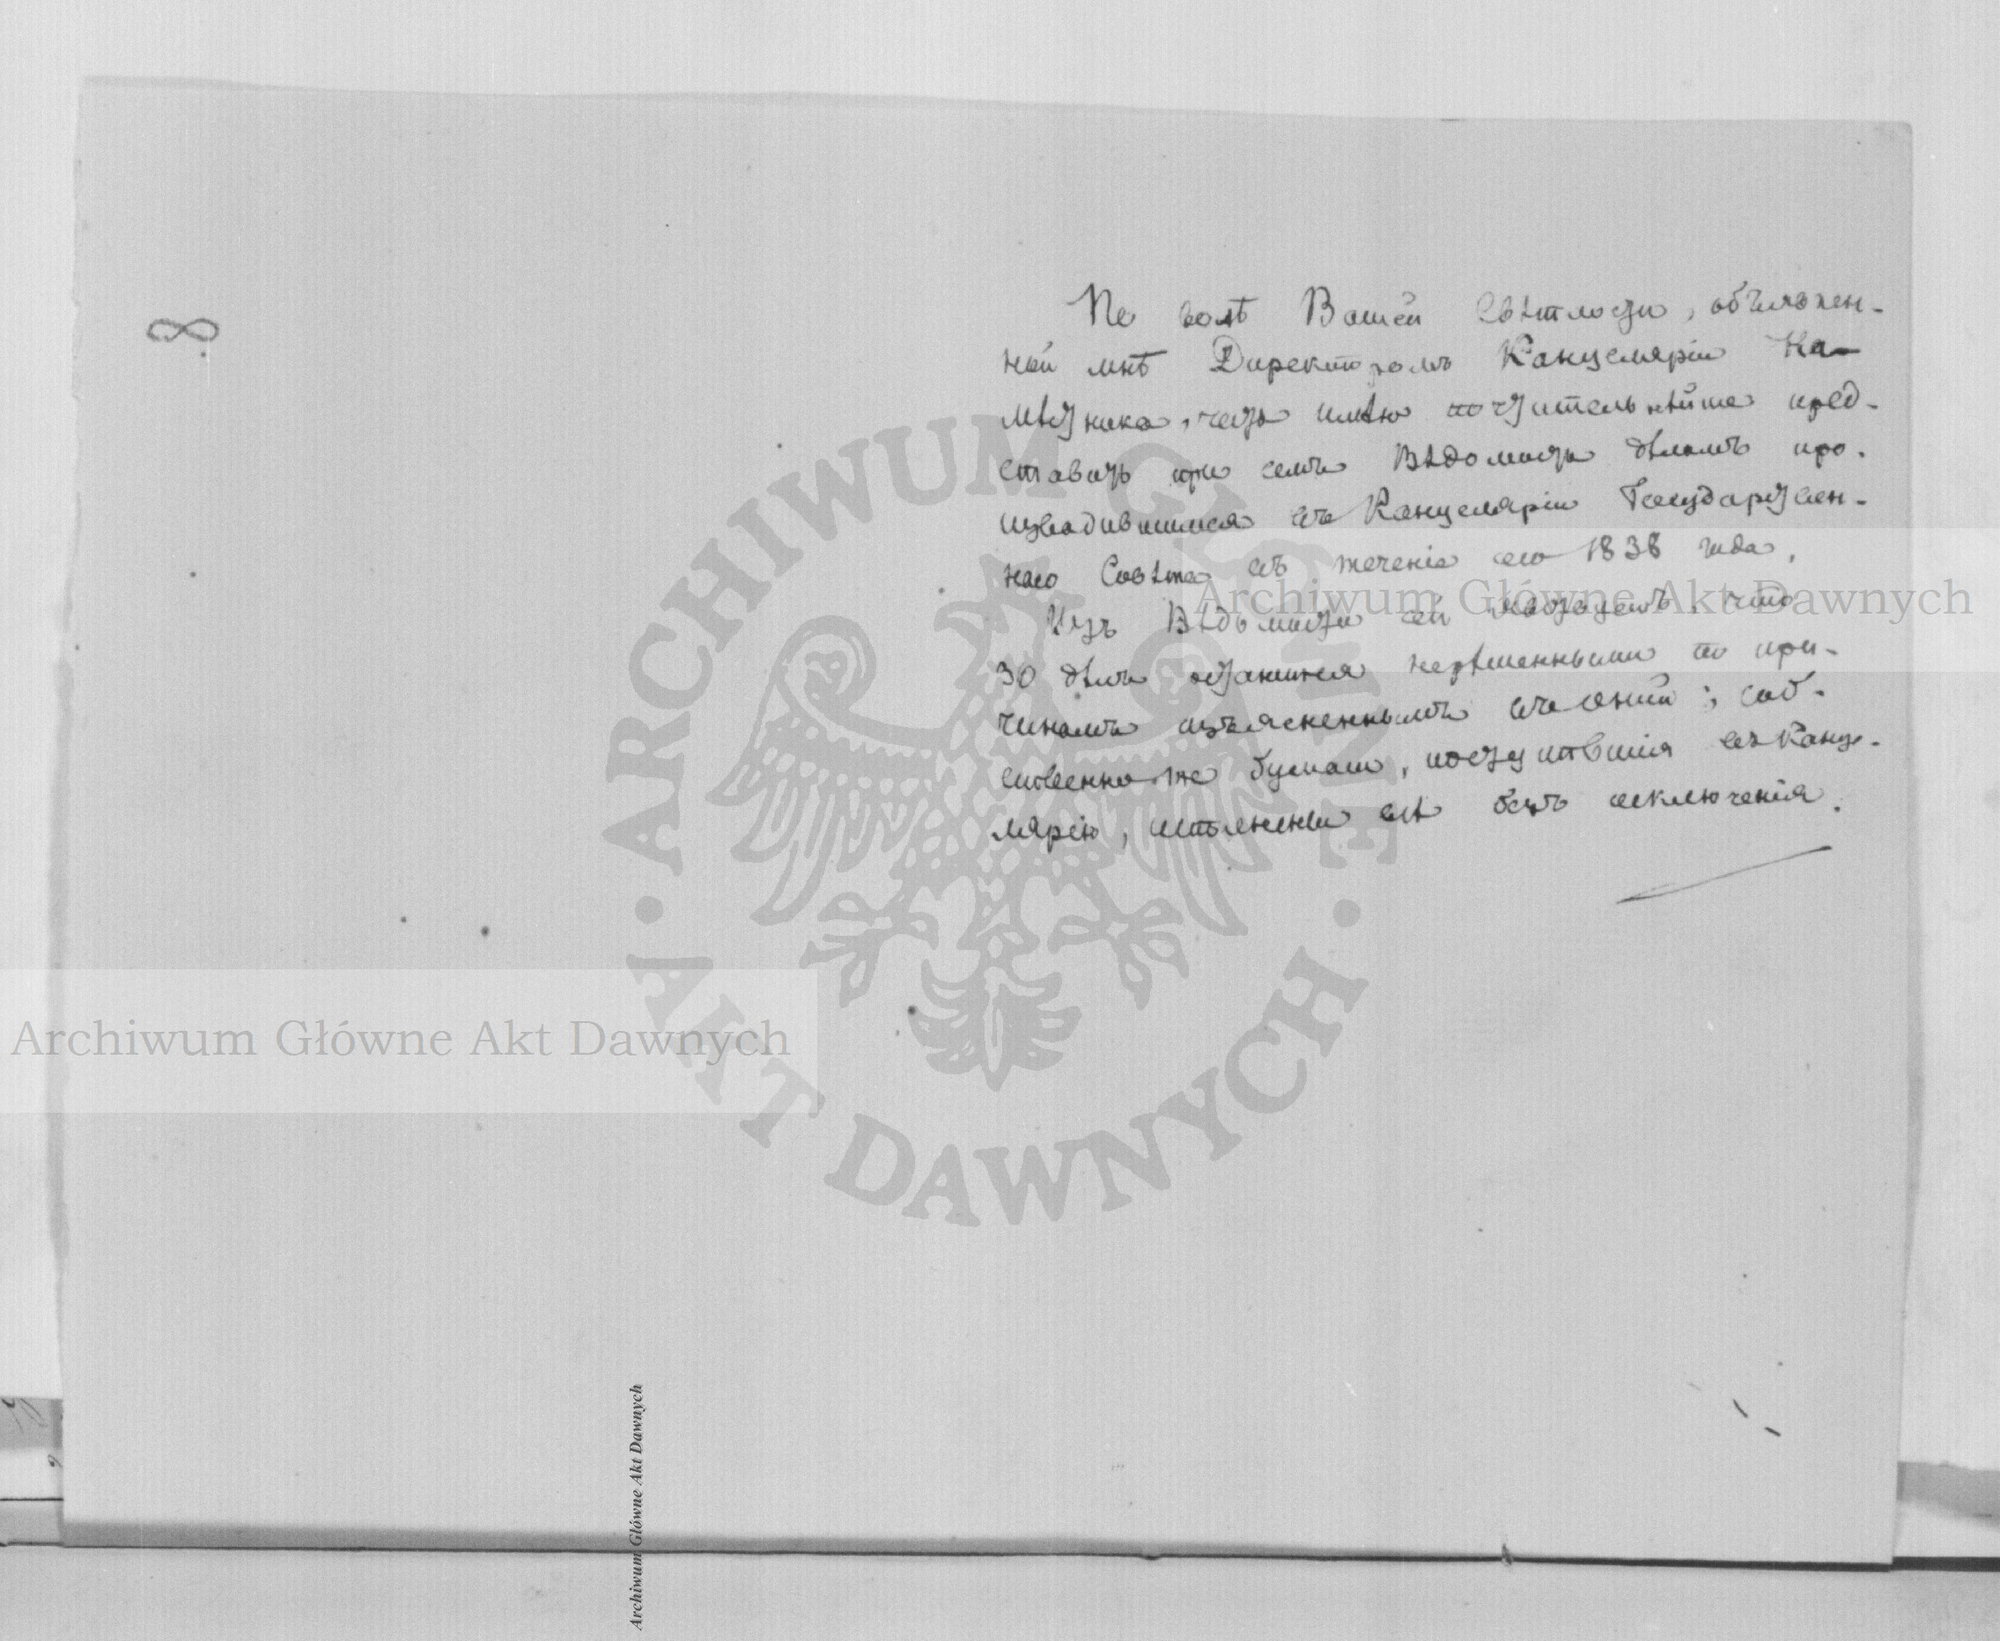 По волѣ Вашей Свѣтлости, объявлен-
ной мнѣ Директоромъ Канцеляріи На-
мѣстника, честь имѣю почтительнѣйше пред-
ставить при семъ Вѣдомость дѣламъ про-
изводившимся въ Канцеляріи Государствен-
наго Совѣта въ теченіе сего 1838 года.
Изъ Вѣдомости сей что
30 дѣлъ остались нерѣшенными по при-
чинамъ изъясненнымъ въ оной; соб-
ственно же бумаги, поступившія въ Канце-
лярію, исполнены всѣ безъ исключенія.
8
ARCHIWUM GŁÓWNE · AKT DAWNYCH ·
Archiwum Główne Akt Dawnych
Archiwum Główne Akt Dawnych
Archiwum Główne Akt Dawnych